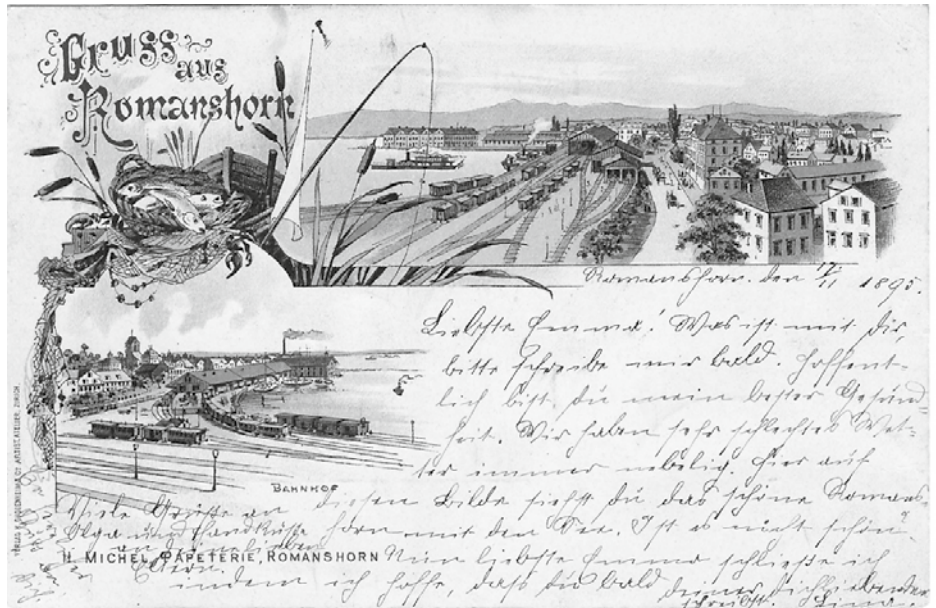 Gruss
aus
Romanshorn
Romanshorn. den 17/11 1895.
Liebste Emma! Was ist mit dir,
bitte schreibe mir bald. Hoffent-
lich bist du mein bester Gesund-
heit. Wir haben sehr schlechtes Wet-
ter immer nebelig. Hier auf
BAHNHOF
diesem Bilde siehst du das schöne Romans-
horn mit dem See. Ist es nicht schön?
Nun liebste Emma schließe ich
indem ich hoffe, dass du bald
schreibst. deine dich liebende
Viele Grüsse an
Olga und Handküsse
Eltern.
H. MICHEL, PAPETERIE, ROMANSHORN